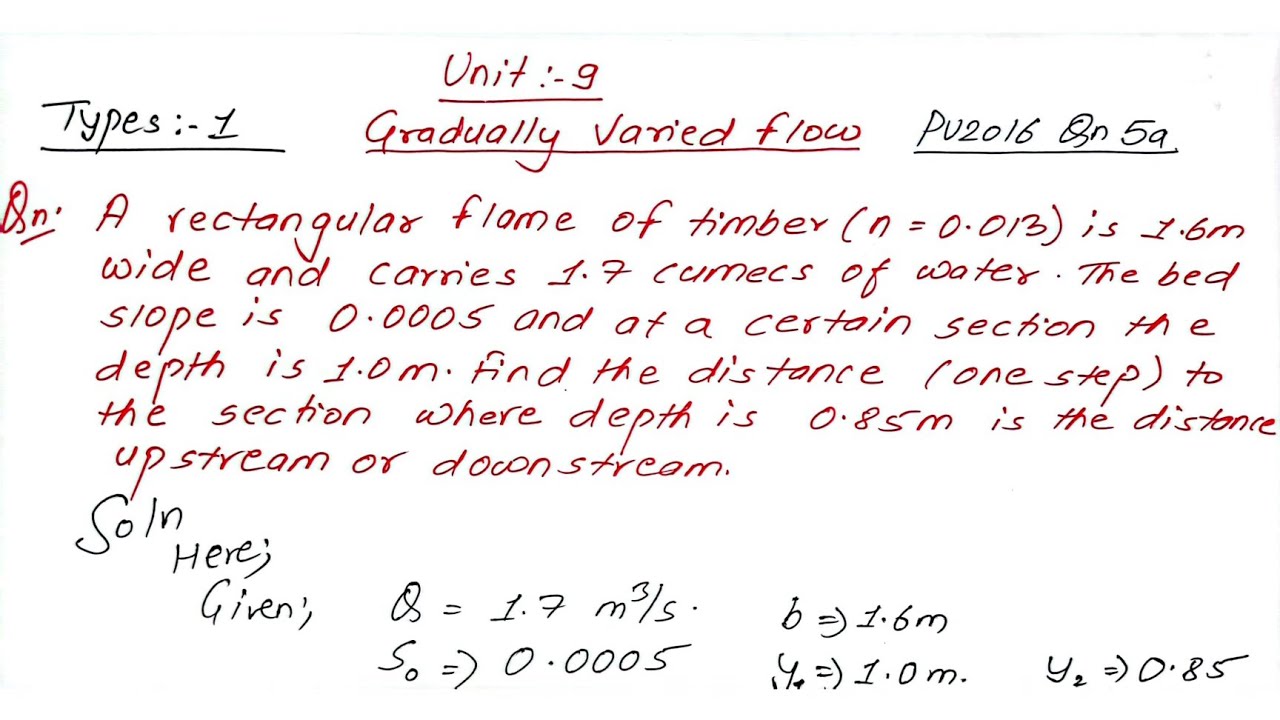 Unit :- 9
Types :- 1 Gradually Varied flow PU2016 Qn 5a.
Qn: A rectangular flame of timber (n = 0.013) is 1.6m
wide and carries 1.7 cumecs of water. The bed
slope is 0.0005 and at a certain section the
depth is 1.0m. find the distance (one step) to
the section where depth is 0.85m is the distance
upstream or downstream.
Soln
Here;
Given;, Q = 1.7 m³/s. b => 1.6m
S₀ => 0.0005 y₁ => 1.0m. y₂ => 0.85